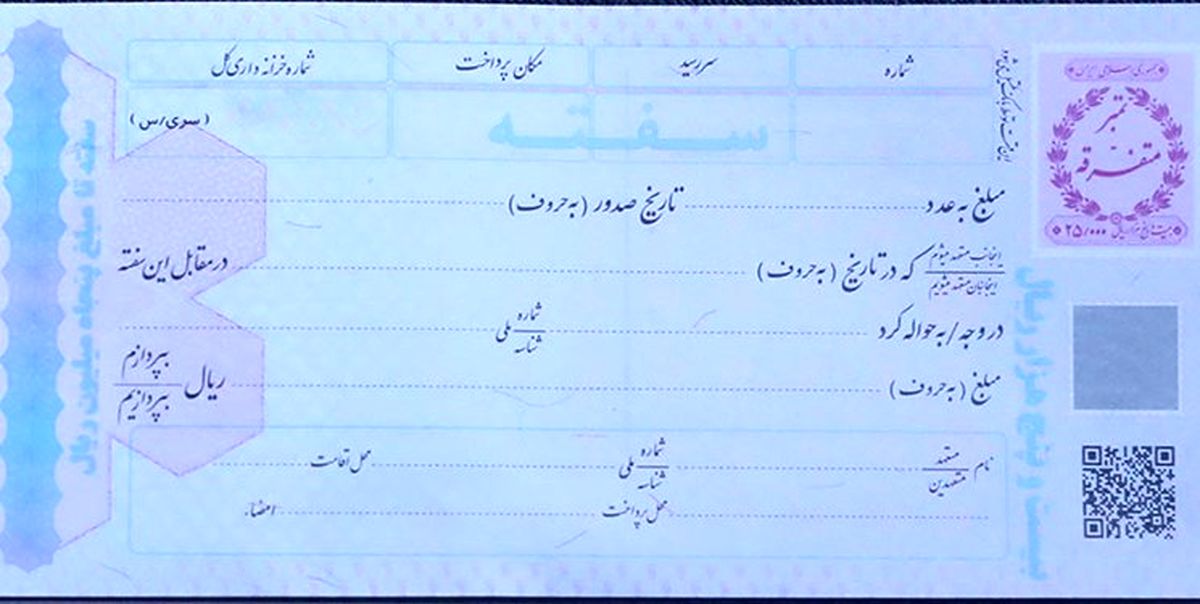 شماره
سررسید
مکان پرداخت
شماره خزانه داری کل
سفته
(سری/س)
جمهوری اسلامی ایران
تمبر
متفرقه
۲۵/۰۰۰
مبلغ به عدد
تاریخ صدور (به حروف)
اینجانب متعهد میشوم
اینجانبان متعهد میشویم
که در تاریخ (به حروف)
در مقابل این سفته
در وجه/به حواله کرد
شماره
شناسه
ملی
مبلغ (به حروف)
ریال
بپردازم
بپردازیم
نام
متعهد
متعهدین
شماره
شناسه
ملی
محل اقامت
محل پرداخت
امضاء
بیست و پنج هزار ریال
سفته تا مبلغ پنجاه میلیون ریال